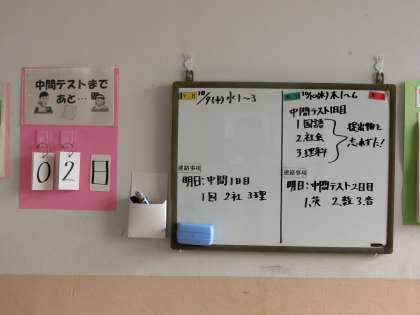 中間テストまで
あと…
02日
今日
10/9(水) 水1~3
連絡事項
明日:中間1日目
1国 2社 3理
10/10(木) 木1~6
中間テスト1日目
1国語
2.社会
3.理科
提出物を
忘れずに!
連絡事項
明日:中間テスト2日目
1.英 2.数 3.音